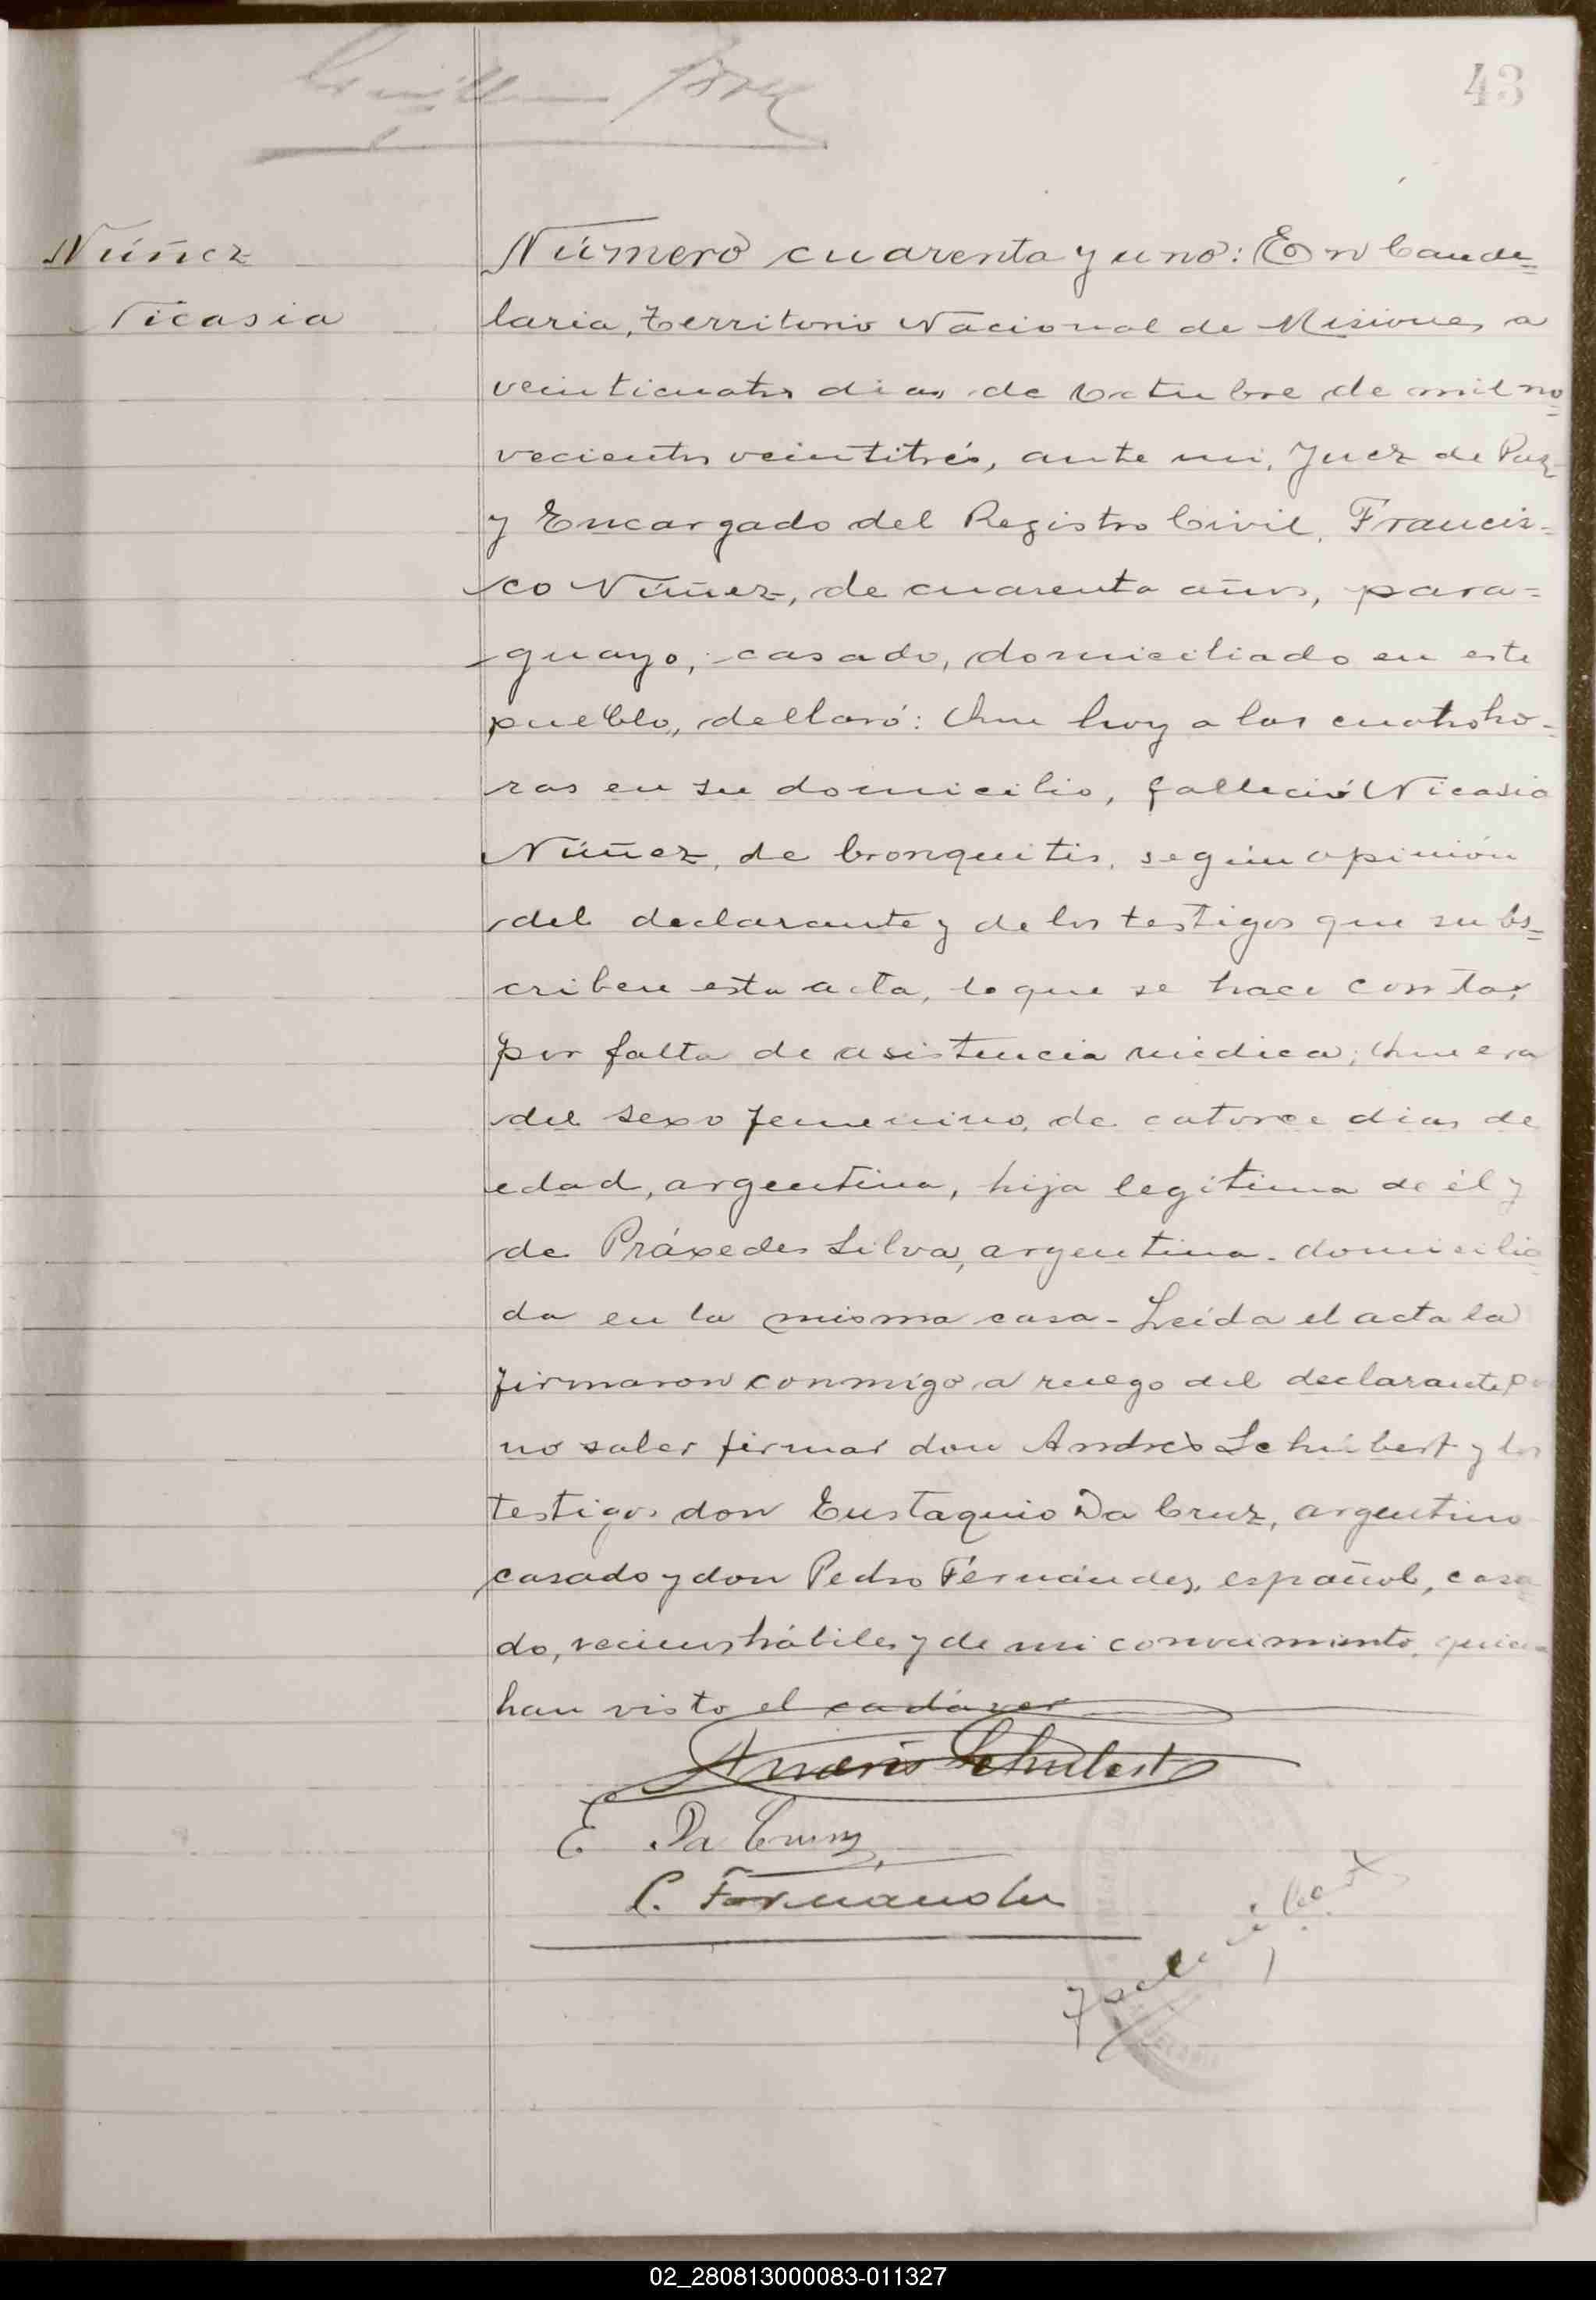 43
Núñez
Nicasia
Número cuarenta y uno: En Cande=
laria, Territorio Nacional de Misiones, a
veinticuatro dias de Octubre de mil no=
vecientos veintitrés, ante mi, Juez de Paz
y Encargado del Registro Civil, Francis=
co Núñez, de cuarenta años, para=
guayo, casado, domiciliado en este
pueblo, declaró: Que hoy a las cuatro ho=
ras en su domicilio, falleció Nicasia
Núñez, de bronquitis, según opinión
del declarante y de los testigos que subs=
criben esta acta, lo que se hace constar
por falta de asistencia médica; Que era
del sexo femenino, de catorce dias de
edad, argentina, hija legitima de él y
de Práxedes Silva, argentina, domicilia
da en la misma casa - Leida el acta la
firmaron conmigo a ruego del declarante por
no saber firmar don Andrés Schubert y los
testigos don Eustaquio Da Cruz, argentino
casado y don Pedro Fernández, español, casa
do, vecinos hábiles y de mi conocimiento, quienes
han visto el cadáver
Andrés Schubert
E Da Cruz
P. Fernandez
02_280813000083-011327